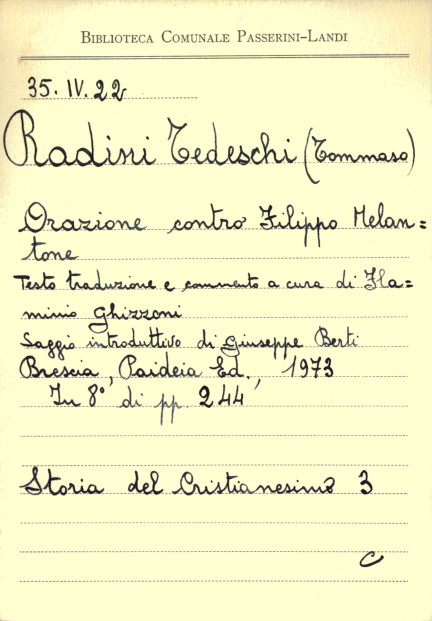 BIBLIOTECA COMUNALE PASSERINI-LANDI
35. IV. 22
Radini Tedeschi (Tommaso)
Orazione contro Filippo Melan=
tone
Testo traduzione e commento a cura di Fla=
minio Ghizzoni
Saggio introduttivo di Giuseppe Berti
Brescia, Paideia Ed., 1973
In 8° di pp. 244
Storia del Cristianesimo 3
C